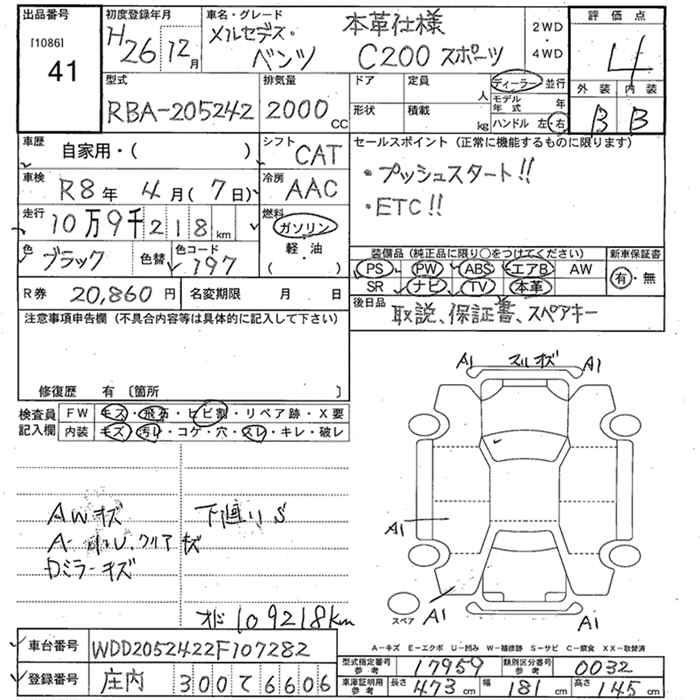 出品番号
[1086]
41
初度登録年月
H26 12月
車名・グレード
メルセデス・ベンツ
本革仕様
C200 スポーツ
2WD・4WD
評価点
4
外装 内装
B B
型式
RBA-205242
排気量
2000cc
ドア 定員 人
形状 積載 kg
ディーラー・並行
モデル年式 年
ハンドル 左・右
車歴
自家用・( )
シフト CAT
車検 R8年 4月(7日)
冷房 AAC
走行 10万9千218km
燃料 ガソリン
軽・油
( )
色 ブラック 色替 色コード 197
R券 20,860円 名変期限 月 日
セールスポイント (正常に機能するものに限ります)
・プッシュスタート!!
・ETC!!
装備品(純正品に限り○をつけてください) 新車保証書
PS PW ABS エアB AW 有・無
SR ナビ TV 本革
後日品 取説、保証書、スペアキー
注意事項申告欄(不具合内容等は具体的に記入して下さい)
修復歴 有〔箇所 〕
検査員記入欄
FW キズ・飛石・ヒビ割・リペア跡・X要
内装 キズ・汚れ・コゲ・穴・スレ・キレ・破レ
AWキズ 下廻りS
Dミラーキズ
109218km
A1 A1
A1
A1 A1
スペア
A-キズ E-エクボ U-凹み W-補修跡 S-サビ C-腐食 XX-取替済
車台番号 WDD2052422F107282
登録番号 庄内 300 て 6606
型式指定番号参考 17959 類別区分番号参考 0032
車庫証明用参考 長さ 473cm 幅 181cm 高さ 145cm